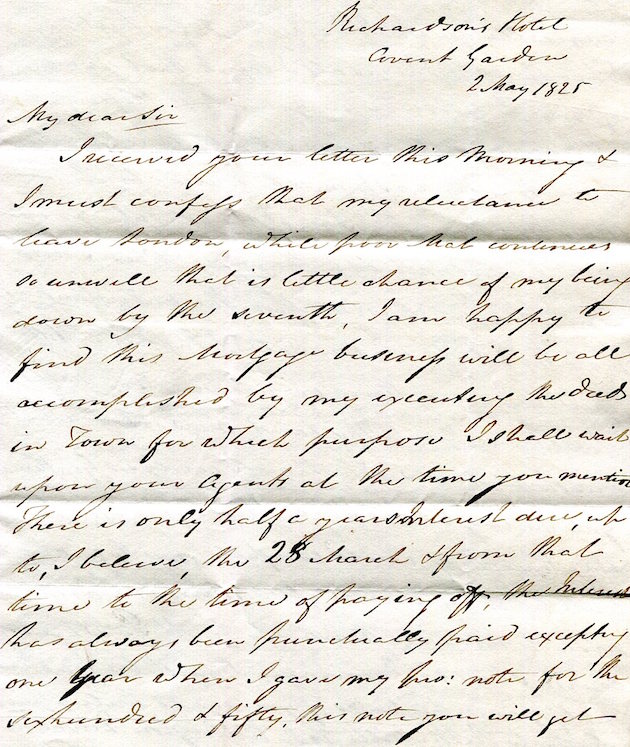 Richardson's Hotel
Covent Garden
2 May 1825
My dear Sir
I received your letter this Morning &
I must confess that my reluctance to
leave London, while poor Mat continues
so unwell that is little chance of my being
down by the seventh, I am happy to
find this Mortgage business will be all
accomplished by my executing the deeds
in Town for which purpose I shall wait
upon your Agents at the time you mention
There is only half a years Interest due, up
to, I beleive, the 25 March & from that
time to the time of paying off, the Interest
has always been punctually paid excepting
one Year when I gave my pro: note for the
six hundred & fifty, this note you will get